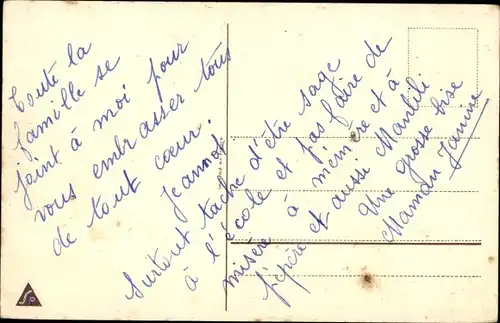 Toute la
famille se
joint à moi pour
vous embrasser tous
de tout cœur.
Jeannot
Surtout tache d'être sage
à l'école et pas faire de
misère à mémère et à
pépère et aussi
Une grosse bise
Maman Janine